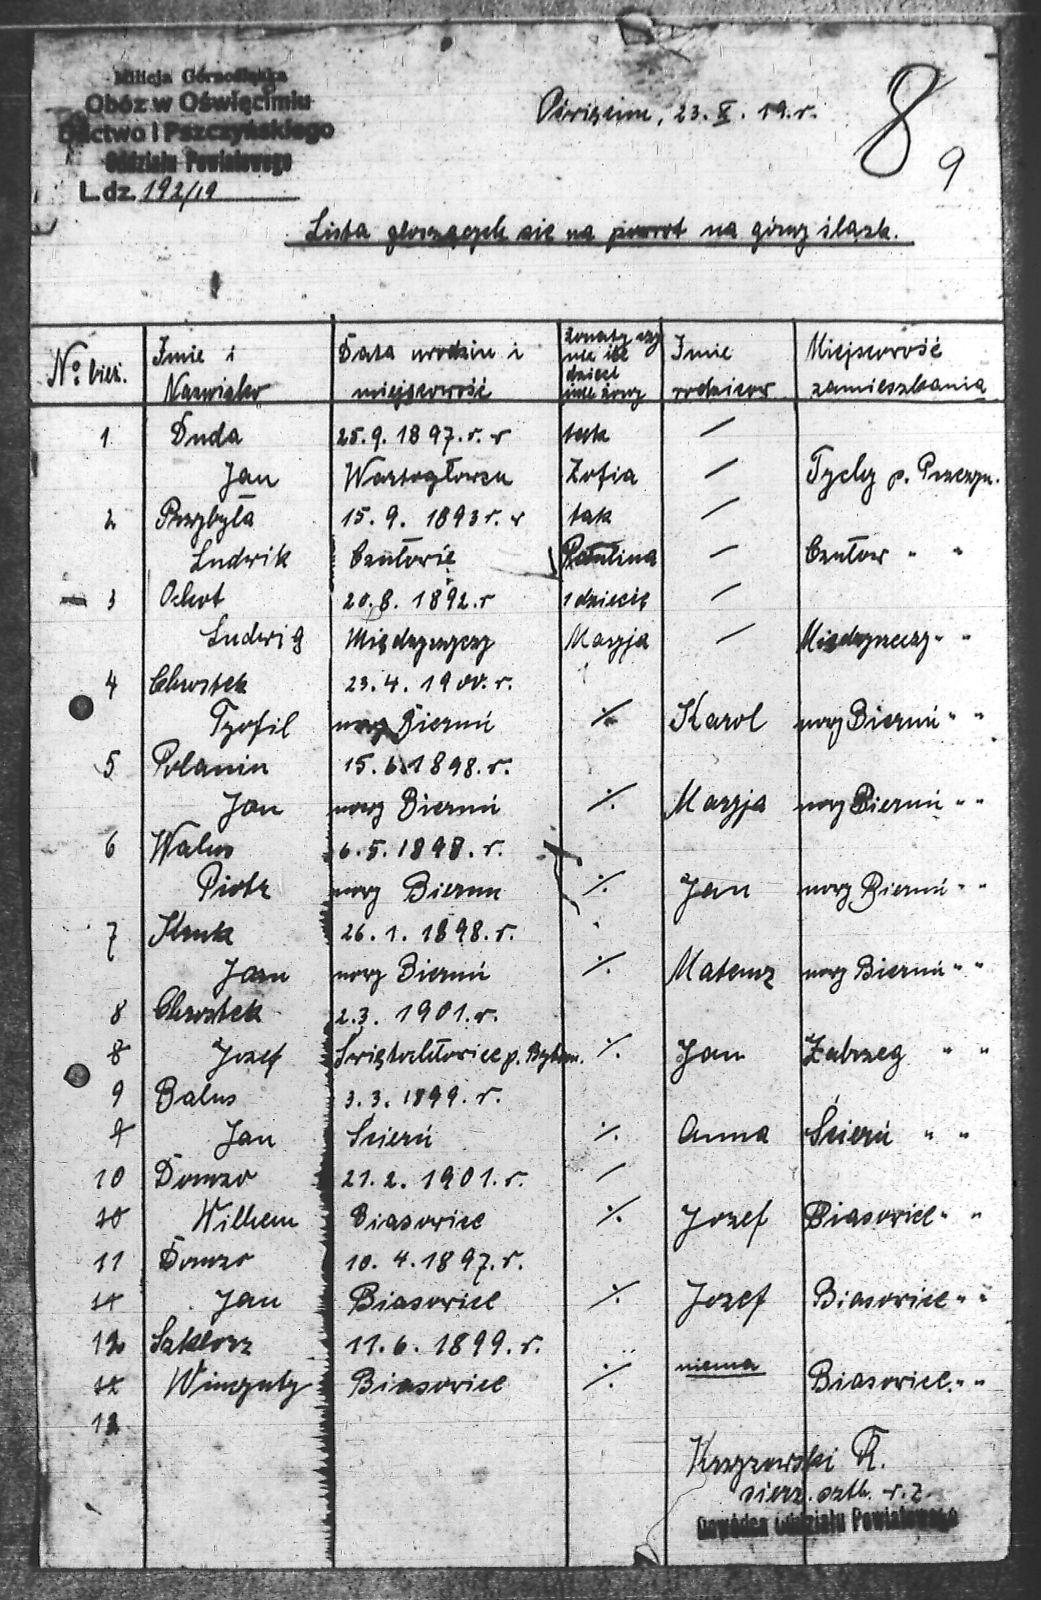 Milicja Górnośląska
Obóz w Oświęcimiu
Dactwo I Pszczyńskiego
Oddziału Powiatowego
L. dz. 192/19
Oświęcim, 23. X. 19. r.
8
9
Lista głoszących się na powrot na górny śląsk.
No. bież. Imie i Nazwisko Data urodzin i miejscowość żonaty czy nie ile dzieci imie żony Imie rodzicow Miejscowość zamieszkania
1 Duda 25. 9. 1897. r. tak /
Jan Wartogłowcu Zofia / Tychy p. Pszczyn.
2 Przybyła 15. 9. 1893 r. tak /
Ludwik Czułowie Paulina / Czułow " "
3 Ochot 20. 8. 1892. r 1 dziecię /
Ludwig Międzyrzyczy Maryja / Miedzyrzeczy " "
4 Chrostek 23. 4. 1900. r.
Tyofil nowy Bieruń ·/. Karol nowy Bieruń " "
5 Polanin 15. 6. 1898. r.
Jan nowy Bieruń ·/. Maryja nowy Bieruń " "
6 Walus 6. 5. 1898. r.
Piotr nowy Bierun ·/. Jan nowy Bieruń " "
7 Kruk 26. 1. 1898. r.
Jan nowy Bieruń ·/. Mateusz nowy Bieruń " "
8 Chrostek 2. 3. 1901. r.
8 Jozef Świętochłowice p. Bytom. ·/. Jan Zabrzeg " "
9 Balus 3. 3. 1899. r.
9 Jan Ścierń ·/. Anna Ścierń " "
10 Domzo 21. 2. 1901. r. /
10 Wilhem Biasowice ·/. Jozef Biasowice " "
11 Domzo 10. 4. 1897. r.
11 Jan Biasowice ·/. Jozef Biasowice " "
12 Szklorz 11. 6. 1899. r.
12 Wincynty Biasowice ·/. niema Biasowice " "
13
Krzyzowski R.
sierz. sztb. r. z.
Dowódca Oddziału Powiatowego